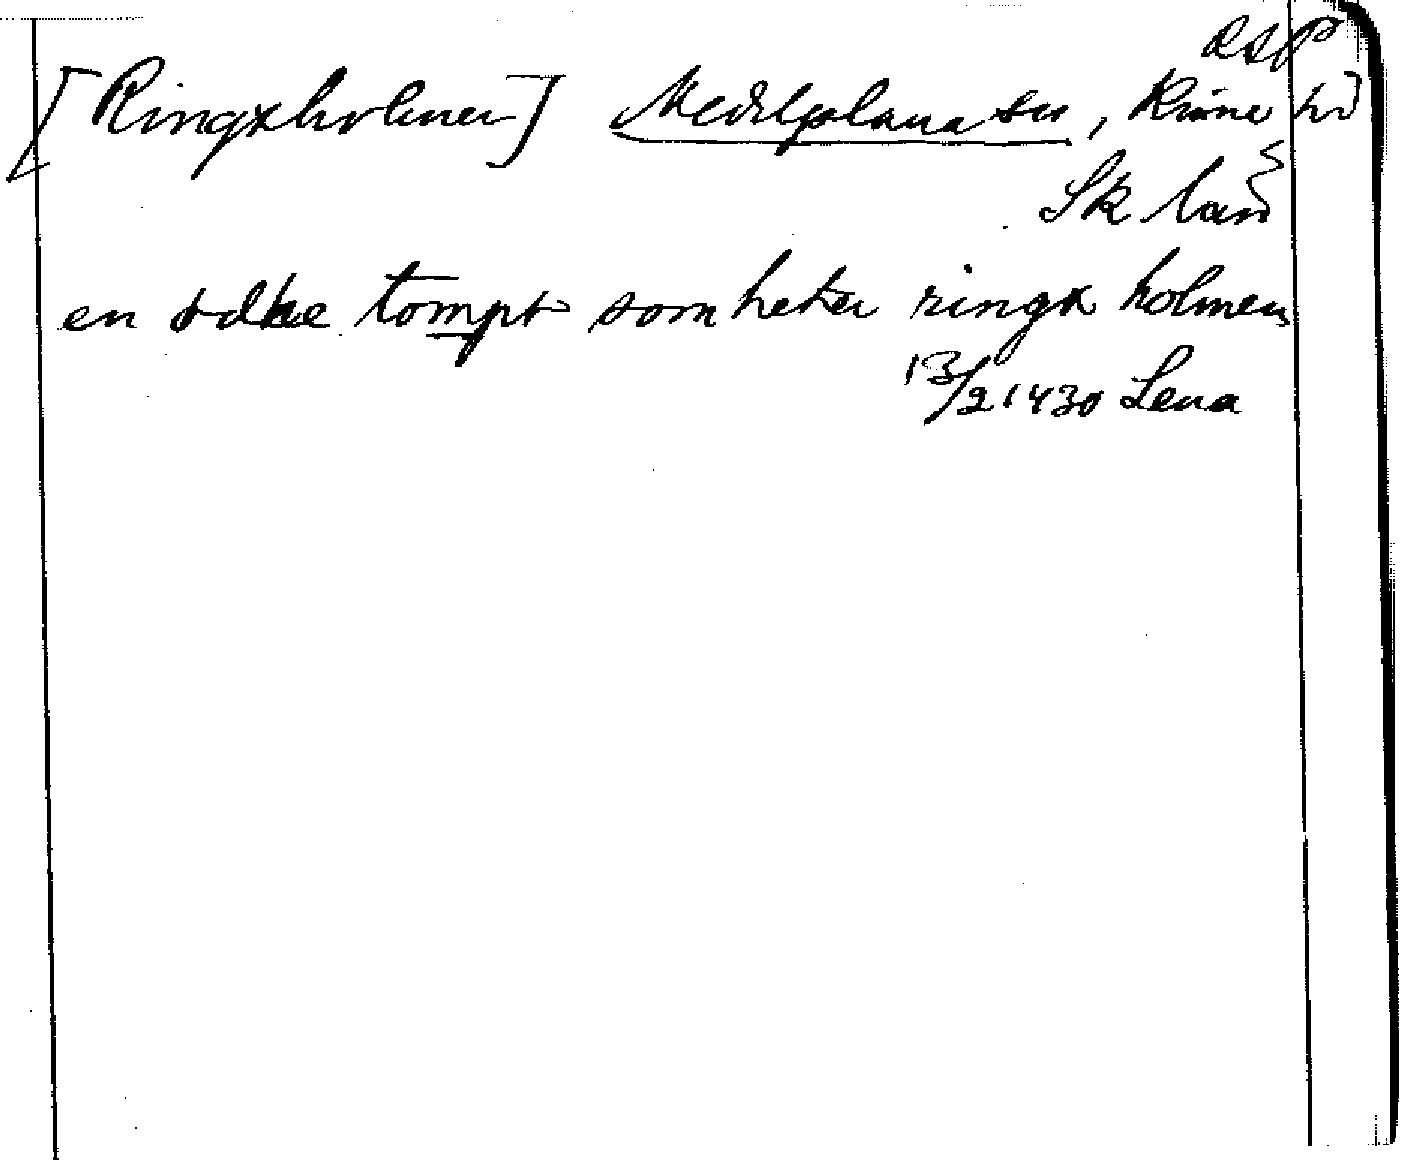 RAP
[Ringxholmen] Medelplana sn, Kinne hd
Sk län
en ödhe tompt som heter ringx holmen
13/2 1430 Lena